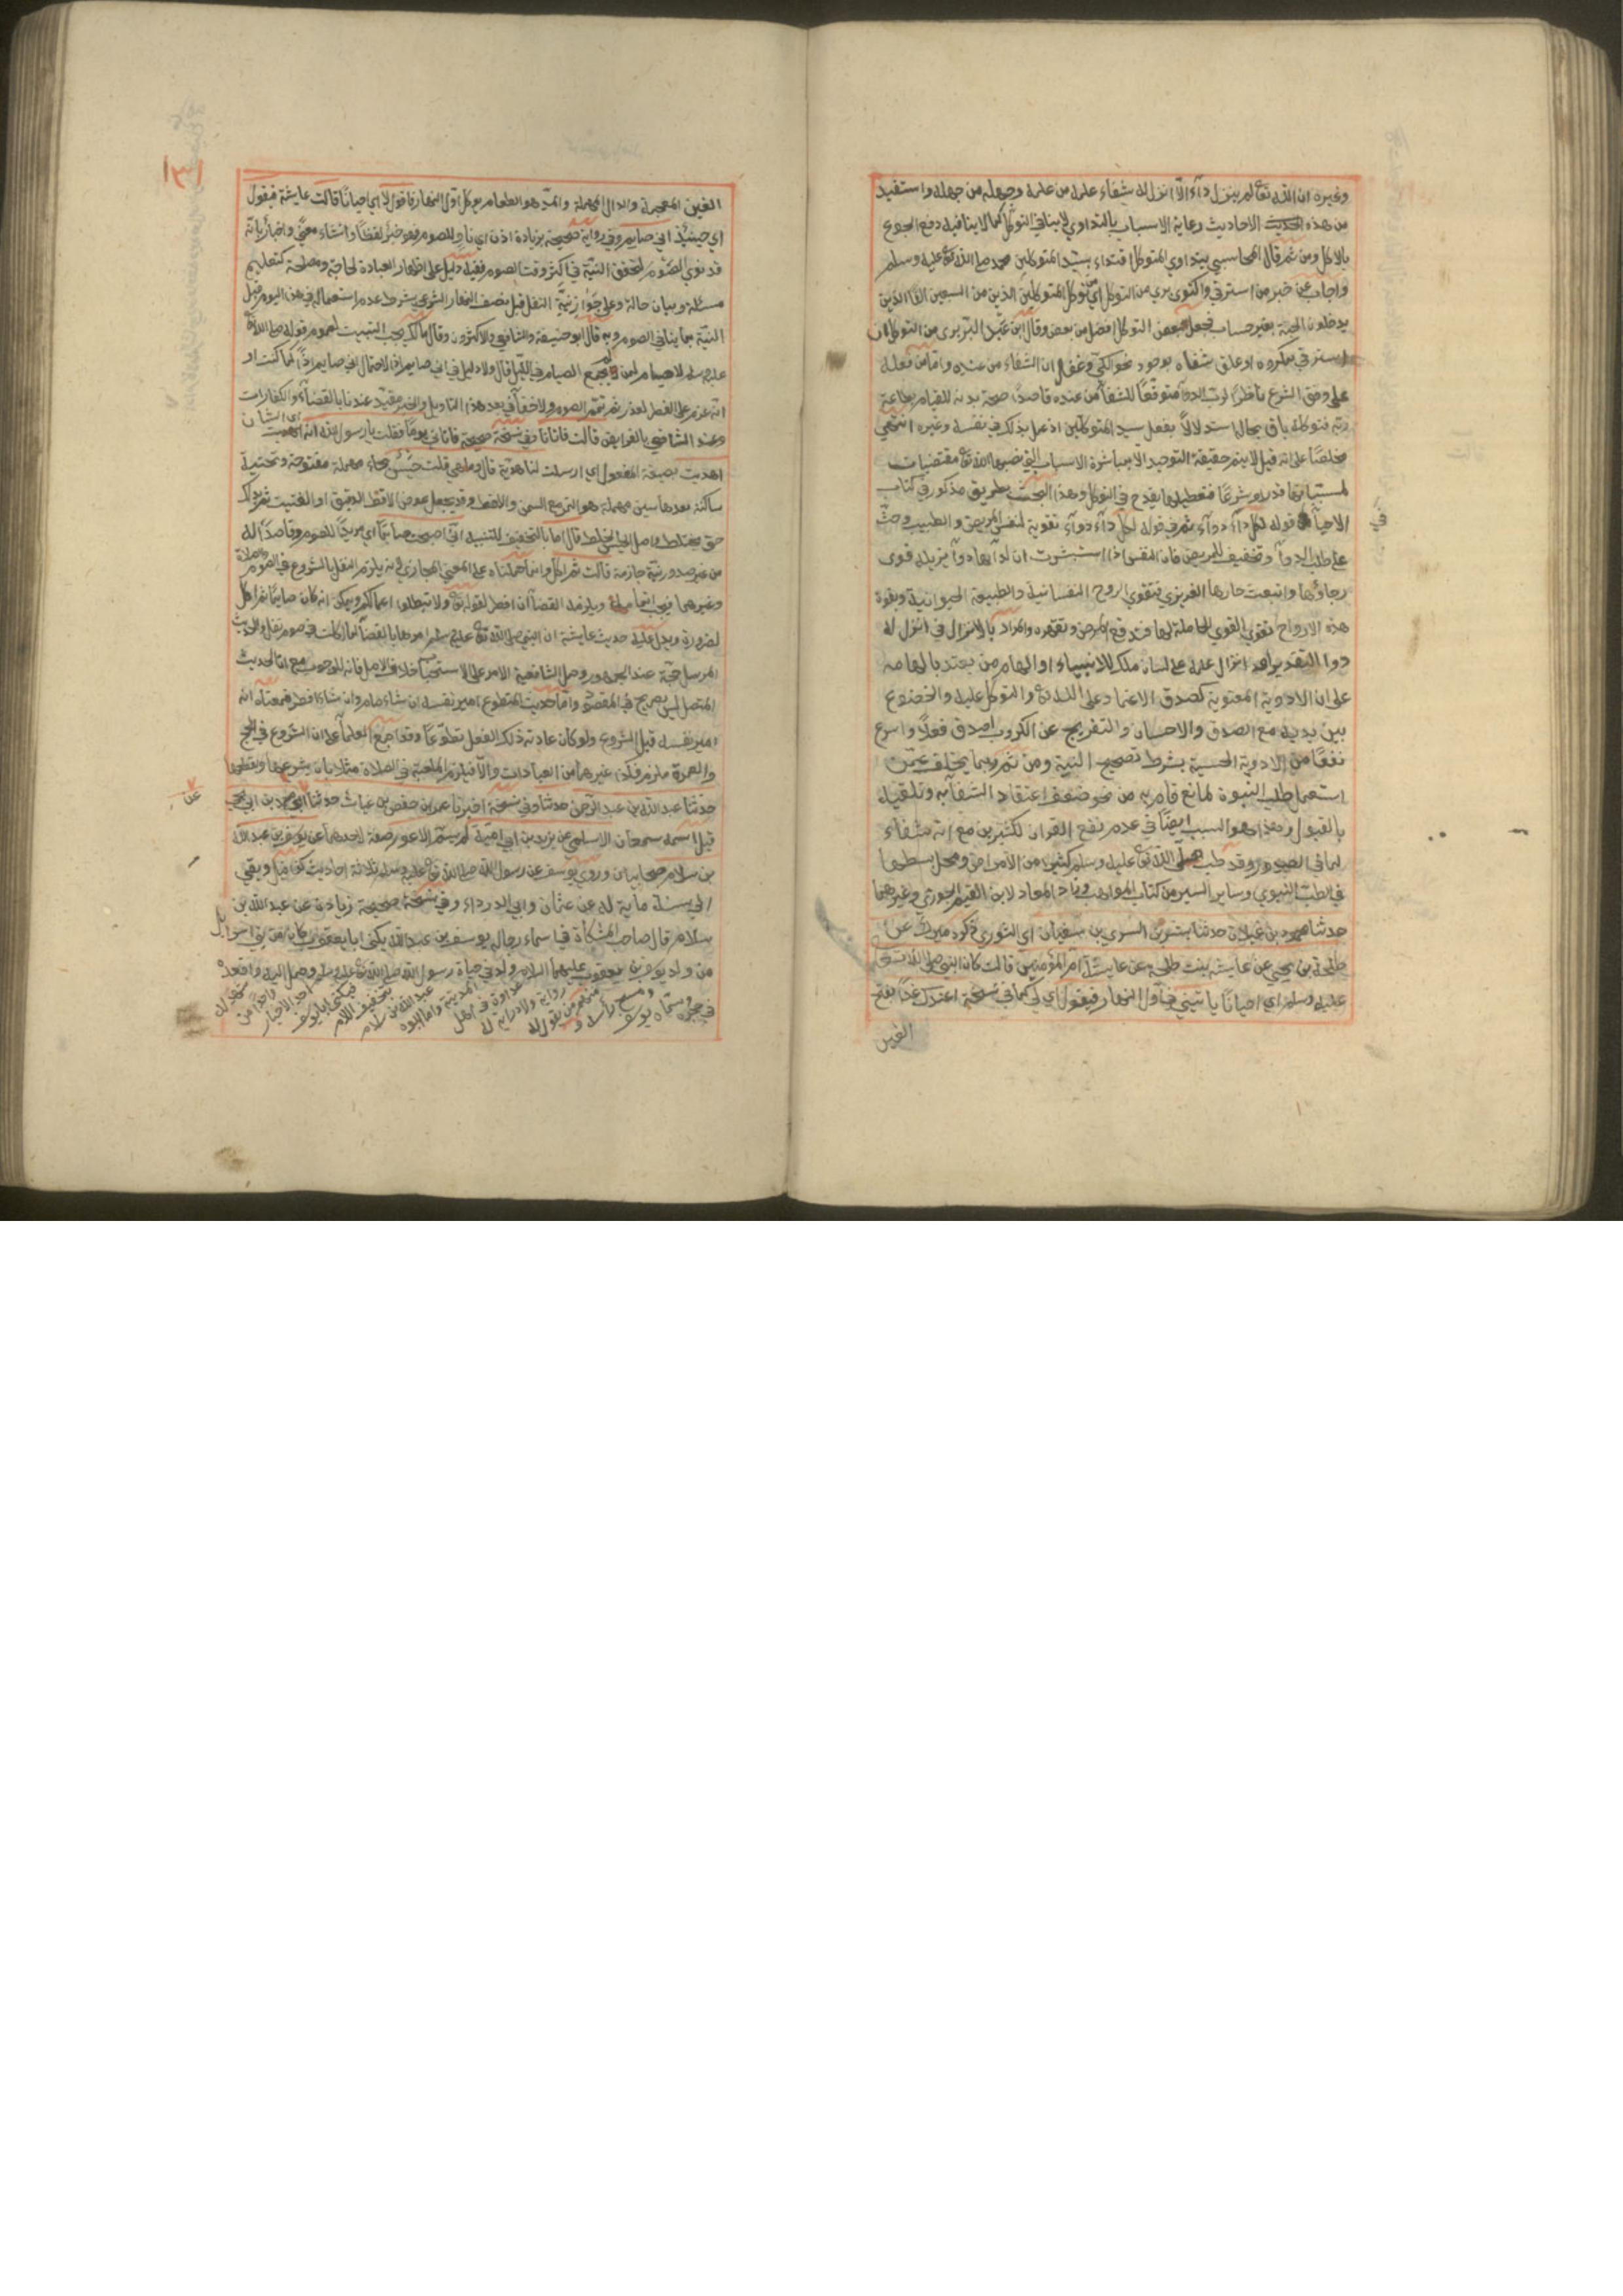 وغيره ان الله تعالى لم ينزل داء الا انزل له شفاء علمه من علمه وجهله من جهله واستفيد
من هذه الاحاديث رعاية الاسباب بالتداوي لا ينافي التوكل كما لا ينافيه دفع الجوع
بالاكل ومن ثم قال المحاسبي يتداوي المتوكل اقتداء بسيد المتوكلين محمد صلى الله تعالى عليه وسلم
واجاب عن خبر من استرقي واكتوي بري من التوكل اي من توكل المتوكلين الذين من السبعين الفا الذين
يدخلون الجنة بغير حساب فجعل بعض التوكل افضل من بعض وقال ابن عبد البر بري من التوكل ان
استرقي بمكروه او علق شفاه بوجود نحو الكي وغفل ان الشفاء من عنده واما من فعله
على وفق الشرع ناظرا لرب الدوآ متوقعا للشفآ من عنده قاصدا صحة بدنه للقيام بطاعة
ربه فتوكله باق بحاله استدلالا بفعل سيد المتوكلين اذ عمل بذلك في نفسه وغيره انتهي
مخلصا على انه قيل لا يتم حقيقة التوحيد الا بمباشرة الاسباب التي نصبها الله تعالى مقتضيات
لمسبباتها قدرا وشرعا فتعطيلها يقدح في التوكل وهذا البحث بطريق مذكور في كتاب
الاحيآ قوله لكل دآء دوآء ثم في قوله لكل دآء دوآء تقوية لنفس المريض والطبيب وحث
في
على طلب الدوآ وتخفيف للمريض فان النفس اذا استبشرت ان لدآئها دوآ يزيله قوي
رجاؤها وانبعث حارها الغريزي فتقوي الروح النفسانية والطبيعية الحيوانية وبقوة
هذه الارواح تقوي القوي الحاملة لها فتدفع المرض وتقهره والمراد بالانزال في انزل له
دوا التقدير او انزال علمه على لسان ملك للانبياء او الهام من يعتد بالهامه
على ان الادوية المعنوية كصدق الاعتماد على الله تعالى والتوكل عليه والخضوع
بين يديه مع الصدق والاحسان والتفريج عن الكروب اصدق فعلا واسرع
نفعا من الادوية الحسية بشرط تصحيح النية ومن ثم ربما يتخلف عمن
استعمل طب النبوة لمانع قام به من نحو ضعف اعتقاد الشفآ به وتلقيه
بالقبول وهذا هو السبب ايضا في عدم نفع القران لكثيرين مع انه شفاء
لما في الصدور وقد طب صلى الله تعالى عليه وسلم كثيرا من الامراض ومحل بسطها
في الطب النبوي وسائر السير من كتاب المواهب وزاد المعاد لابن القيم الجوزي وغيرهما
حدثنا محمود بن غيلان حدثنا بشر بن السري بن سفيان اي الثوري ذكره ميرك عن
طلحة بن يحيي عن عايشة بنت طلحة عن عايشة ام المؤمنين قالت كان النبي صلى الله تعالى
عليه وسلم اي احيانا ياتيني في اول النهار فيقول اي لي كما في نسخة اعندك غدآ بفتح
الغين
١٣١
الغين المعجمة والدال المهملة والمد هو الطعام يوكل اول النهار فاقول لا اي احيانا قالت عايشة فيقول
اي حينئذ اني صايم وفي رواية صحيحة بزيادة اذن اي ناو للصوم فهو خبر لفظا وانشاء معني واخبار بانه
قد نوي الصوم لتحقق النية في اكثر وقت الصوم ففيه دليل على اظهار العبادة لحاجة ومصلحة كتعليم
مسئلة وبيان حالة وعلى جواز نية النفل قبل نصف النهار الشرعي بشرط عدم استعماله في هذا اليوم قبل
النية بما ينافي الصوم وبه قال ابو حنيفة والشافعي والاكثرون وقال مالك يجب التبييت لعموم قوله صلى الله تعالى
عليه وسلم لا صيام لمن لم يجمع الصيام في الليل قال ولا دليل في اني صايم اذ الاحتمال اني صايم اذا كما كنت او
انه عزم على الفطر لعذر ثم تمم الصوم ولا خفآ في بعد هذا التاويل والخبر مقيد عندنا بالقضآء والكفارات
وعند الشافعي بالفرايض قالت فاتانا وفي نسخة صحيحة فاتاني يوما فقلت يا رسول الله انه اي الشان
اهديت بصيغة المفعول اي ارسلت لنا هدية قال وما هي قلت حيس بحاء مهملة مفتوحة وتحتية
ساكنة بعدها سين مهملة هو التمر مع السمن والاقط وقد يجعل عوض الاقط الدقيق او الفتيت ثم يدلك
حتى يختلط واصل الحيس الخلط قال اما بالتخفيف للتنبيه اني اصبحت صايما اي مريدا للصوم وقاصدا له
من غير صدور نية جازمة قالت ثم اكل وانما حملناه على المعني المجازي لانه يلزم النفل بالشروع في الصوم والصلاة
وغيرهما فيجب اتمامه ويلزمه القضآ ان افطر لقوله تعالى ولا تبطلوا اعمالكم ويمكن انه كان صايما ثم اكل
لضرورة ويدل عليه حديث عايشة ان النبي صلى الله تعالى عليه وسلم امرها بالقضآ لما اكلت في صوم نفل والحديث
المرسل حجة عند الجمهور وحمل الشافعية الامر على الاستحباب خلاف الاصل فانه للوجوب مع ان الحديث
المتصل ليس بصريح في المقصود واما حديث المتطوع امير نفسه ان شاء صام وان شاء افطر فمعناه انه
امير نفسه قبل الشروع ولو كان عادته ذلك الفعل تطوعا وقد اجمع العلمآ على ان الشروع في الحج
والعمرة ملزم فكذا غيرهما من العبادات والا فيلزم الملعبة في الصلاة مثلا بان يشرعها ويقطعها
حدثنا عبد الله بن عبد الرحمن حدثنا وفي نسخة اخبرنا عمر بن حفص بن غياث حدثنا ابي عن محمد بن ابي يحيي
عن
قيل اسمه سمعان الاسلمي عن يزيد بن ابي امية لم يسم الاعور صفة لاحدهما عن يوسف بن عبد الله
بن سلام صحابيان وروي يوسف عن رسول الله صلى الله تعالى عليه وسلم ثلاثة احاديث كذا قيل وبقي
الي سنة ماية له عن عثمان وابي الدرداء وفي نسخة صحيحة زيادة عن عبد الله بن
سلام قال صاحب المشكاة في اسماء رجاله يوسف بن عبد الله يكني ابا يعقوب كان من بني اسرائيل
من ولد يوسف بن يعقوب عليهما السلام ولد في حياة رسول الله صلى الله تعالى عليه وسلم وحمل اليه واقعده
في حجره وسماه يوسف ومسح راسه ومنهم من يقول له رواية ولا دراية له عداده في اهل المدينة واما ابوه عبد الله بن سلام بتخفيف اللام فيكني ابا يوسف احد الاحبار واحد من شهد له